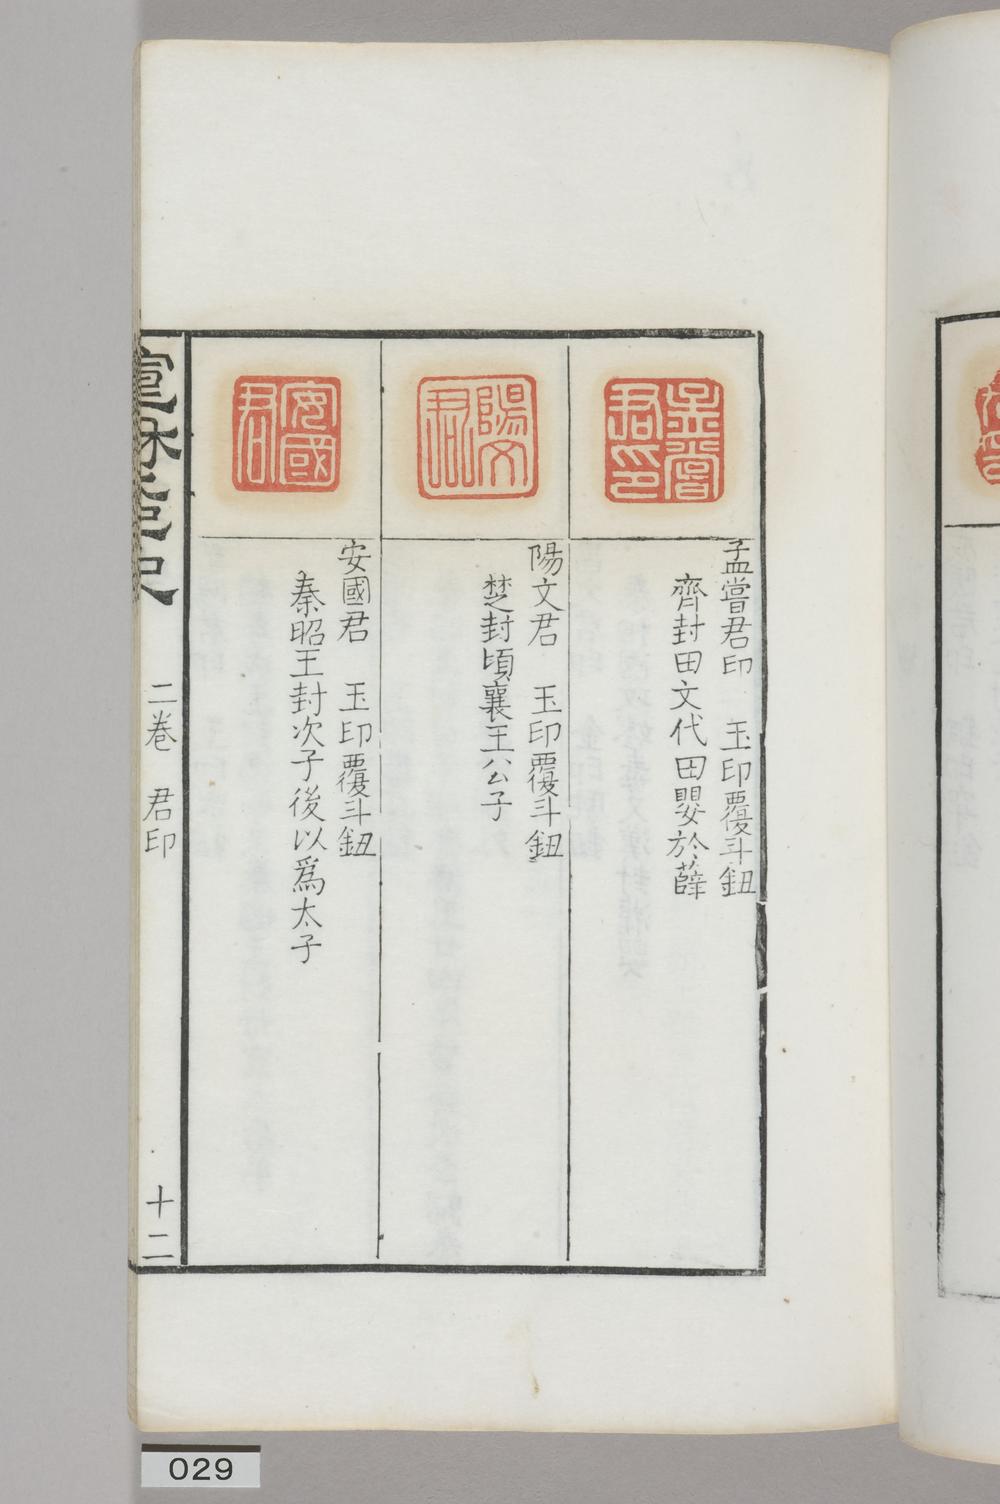 孟嘗君印
孟嘗君印　玉印覆斗鈕
齊封田文代田嬰於薛
陽文君
陽文君　玉印覆斗鈕
楚封頃襄王公子
安國君
安國君　玉印覆斗鈕
秦昭王封次子後以爲太子
宣和
史
二卷　君印
十二
029